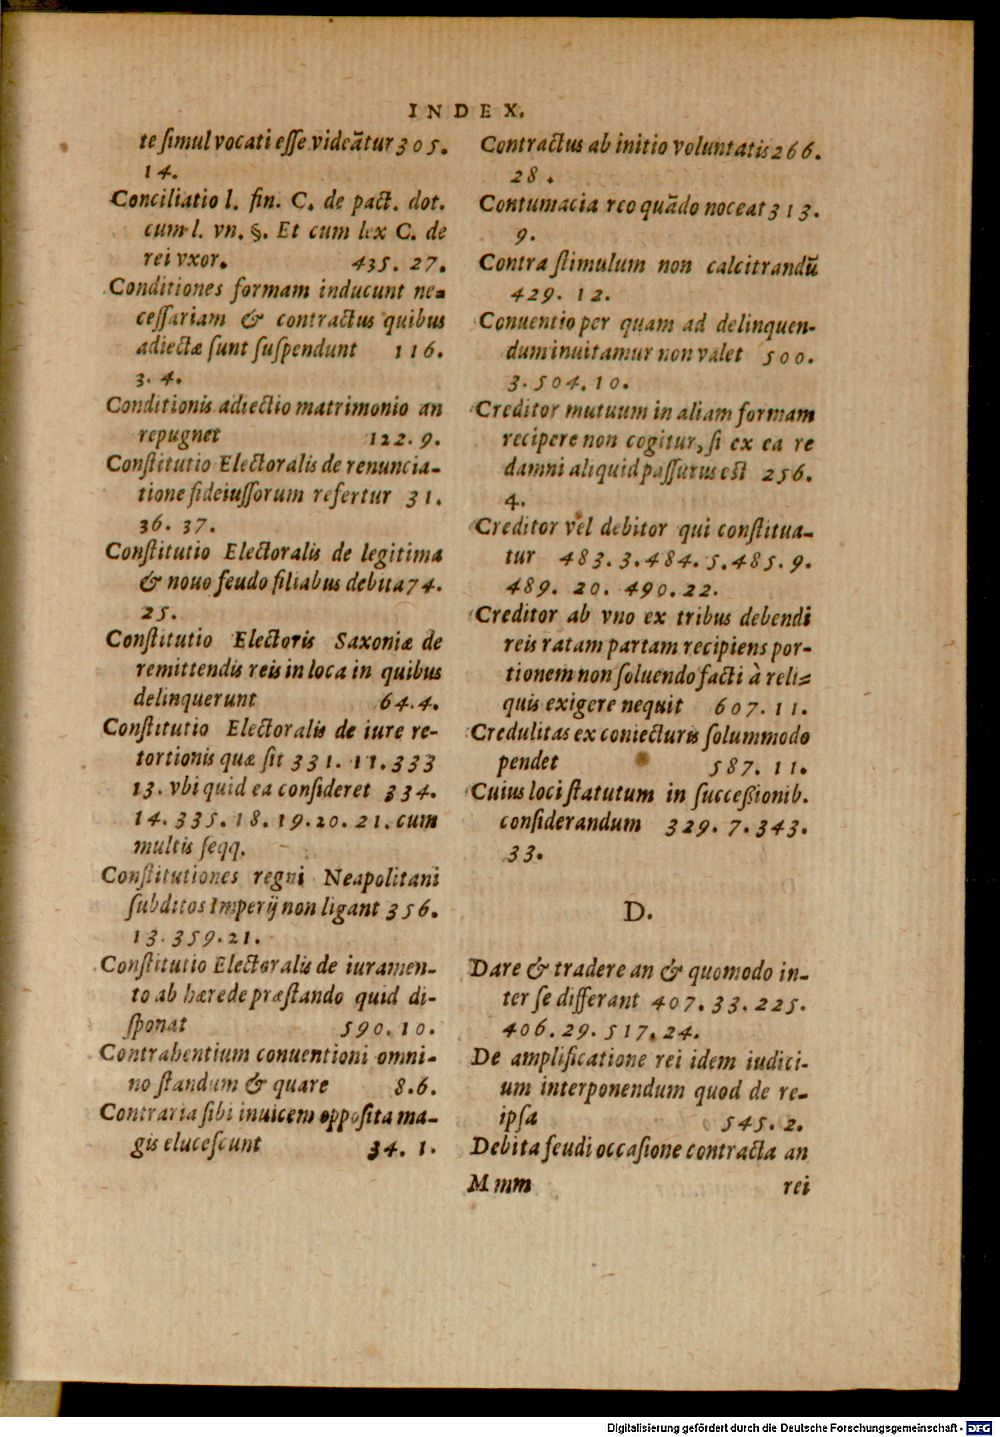 INDEX.
te ſimul vocati eſſe videãtur 305.
14.
Conciliatio l. fin. C. de pact. dot.
cum l. vn. §. Et cum lex C. de
rei vxor. 435. 27.
Conditiones formam inducunt ne=
ceſſariam & contractus quibus
adiectæ ſunt ſuſpendunt 116.
3. 4.
Conditionis adiectio matrimonio an
repugnet 122. 9.
Conſtitutio Electoralis de renuncia-
tione fideiuſſorum refertur 31.
36. 37.
Conſtitutio Electoralis de legitima
& nouo feudo filiabus debita 74.
25.
Conſtitutio Electoris Saxoniæ de
remittendis reis in loca in quibus
delinquerunt 64. 4.
Conſtitutio Electoralis de iure re-
tortionis quæ ſit 331. 11. 333
13. vbi quid ea conſideret 334.
14. 335. 18. 19. 20. 21. cum
multis ſeqq.
Conſtitutiones regni Neapolitani
ſubditos Imperij non ligant 356.
13. 359. 21.
Conſtitutio Electoralis de iuramen-
to ab hærede præſtando quid di-
ſponat 590. 10.
Contrahentium conuentioni omni-
no ſtandum & quare 8. 6.
Contraria ſibi inuicem oppoſita ma-
gis eluceſcunt 34. 1.
Contractus ab initio voluntatis 266.
28.
Contumacia reo quãdo noceat 313.
9.
Contra ſtimulum non calcitrandũ
429. 12.
Conuentio per quam ad delinquen-
dum inuitamur non valet 500.
3. 504. 10.
Creditor mutuum in aliam formam
recipere non cogitur, ſi ex ea re
damni aliquid paſſurus eſt 256.
4.
Creditor vel debitor qui conſtitua-
tur 483. 3. 484. 5. 485. 9.
489. 20. 490. 22.
Creditor ab vno ex tribus debendi
reis ratam partam recipiens por-
tionem non ſoluendo facti à reli=
quis exigere nequit 607. 11.
Credulitas ex coniecturis ſolummodo
pendet 587. 11.
Cuius loci ſtatutum in ſucceßionib.
conſiderandum 329. 7. 343.
33.
D.
Dare & tradere an & quomodo in-
ter ſe differant 407. 33. 225.
406. 29. 517. 24.
De amplificatione rei idem iudici-
um interponendum quod de re-
ipſa 545. 2.
Debita feudi occaſione contracta an
Mmm rei
Digitalisierung gefördert durch die Deutsche Forschungsgemeinschaft - DFG